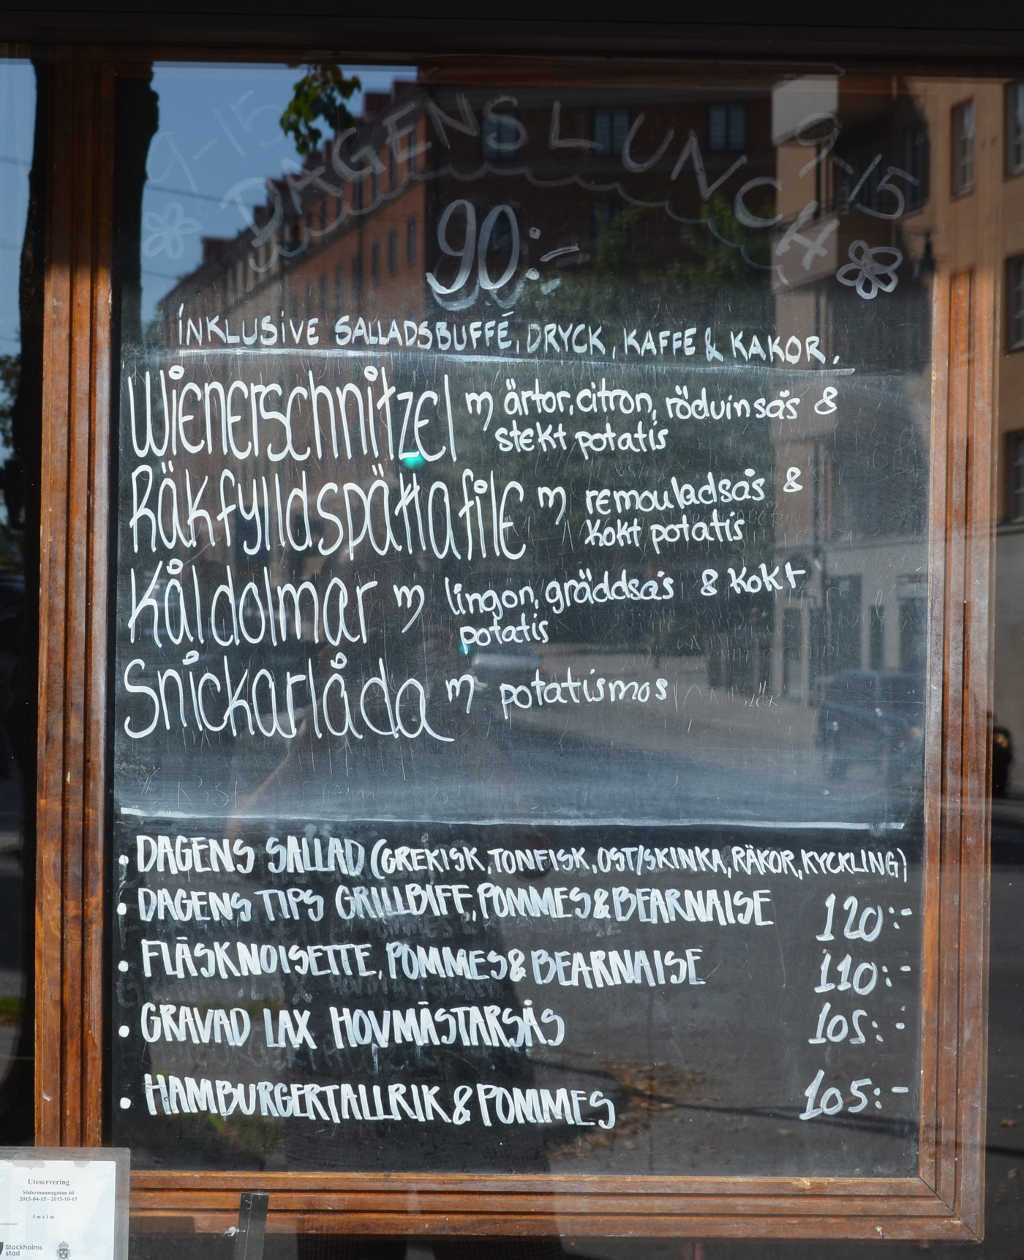 9-15 DAGENS LUNCH 9-15
90:-
INKLUSIVE SALLADSBUFFÉ, DRYCK, KAFFE & KAKOR.
Wienerschnitzel m ärtor, citron, rödvinsås &
stekt potatis
Räkfylld spättafilé m remouladsås &
kokt potatis
Kåldolmar m lingon, gräddsås & kokt
potatis
Snickarlåda m potatismos
• DAGENS SALLAD (GREKISK, TONFISK, OST/SKINKA, RÄKOR, KYCKLING)
• DAGENS TIPS GRILLBIFF, POMMES & BEARNAISE 120:-
• FLÄSKNOISETTE, POMMES & BEARNAISE 110:-
• GRAVAD LAX HOVMÄSTARSÅS 105:-
• HAMBURGERTALLRIK & POMMES 105:-
Uteservering
2015-04-15 - 2015-10-15
Stockholms
stad